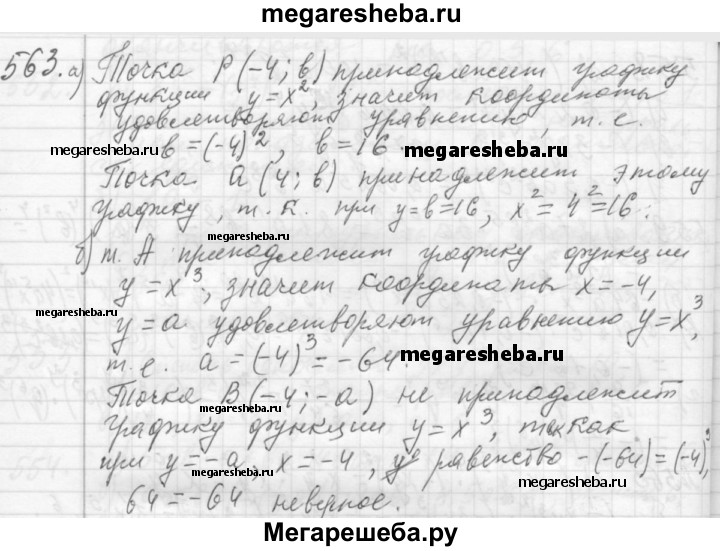 megaresheba.ru
563. а) Точка P(-4; b) принадлежит графику
функции y=x², значит координаты
удовлетворяют уравнению, т.е.
b=(-4)², b=16.
megaresheba.ru
megaresheba.ru
Точка a(4; b) принадлежит этому
графику, т.к. при y=b=16, x²=4²=16.
megaresheba.ru
б) т. A принадлежит графику функции
y=x³, значит координаты x=-4,
megaresheba.ru
y=a удовлетворяют уравнению y=x³,
т.е. a=(-4)³=-64.
megaresheba.ru
Точка B(-4; -a) не принадлежит
megaresheba.ru
графику функции y=x³, так как
при y=-a, x=-4, равенство -(-64)=(-4)³,
megaresheba.ru
64=-64 неверное.
Мегарешеба.ру